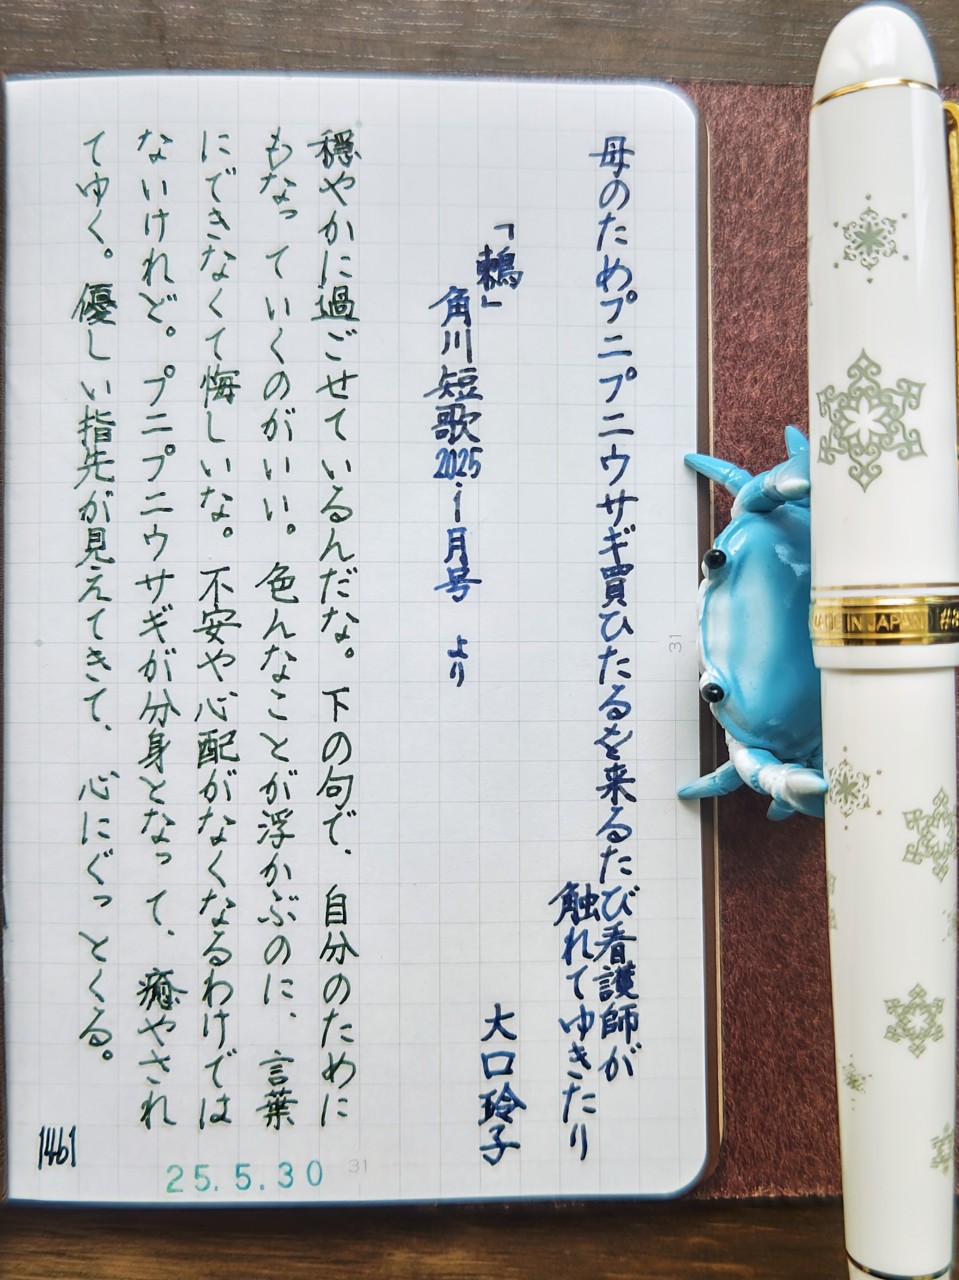 母のためプニプニウサギ買ひたるを来るたび看護師が
触れてゆきたり
大口玲子
「鶫」
角川短歌2025.1月号 より
穏やかに過ごせているんだな。下の句で、自分のために
もなっていくのがいい。色んなことが浮かぶのに、言葉
にできなくて悔しいな。不安や心配がなくなるわけでは
ないけれど。プニプニウサギが分身となって、癒やされ
てゆく。優しい指先が見えてきて、心にぐっとくる。
1461
25.5.30
31
31
MADE IN JAPAN